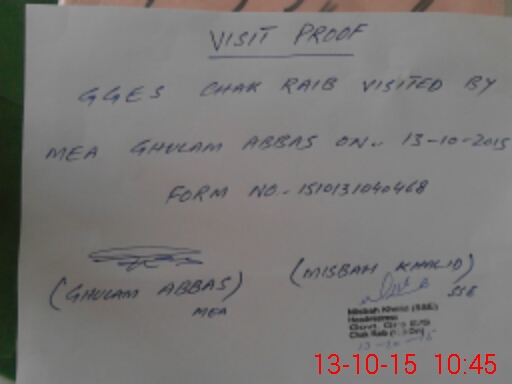 VISIT PROOF
GGES CHAK RAIB VISITED BY
MEA GHULAM ABBAS ON. 13-10-2015
FORM NO- 1510131040468
(GHULAM ABBAS)
MEA
(MISBAH KHALID)
SSE
Misbah Khalid (SSE)
Headmistress
Govt. Girls E/S
Chak Raib
13-10-15
13-10-15 10:45